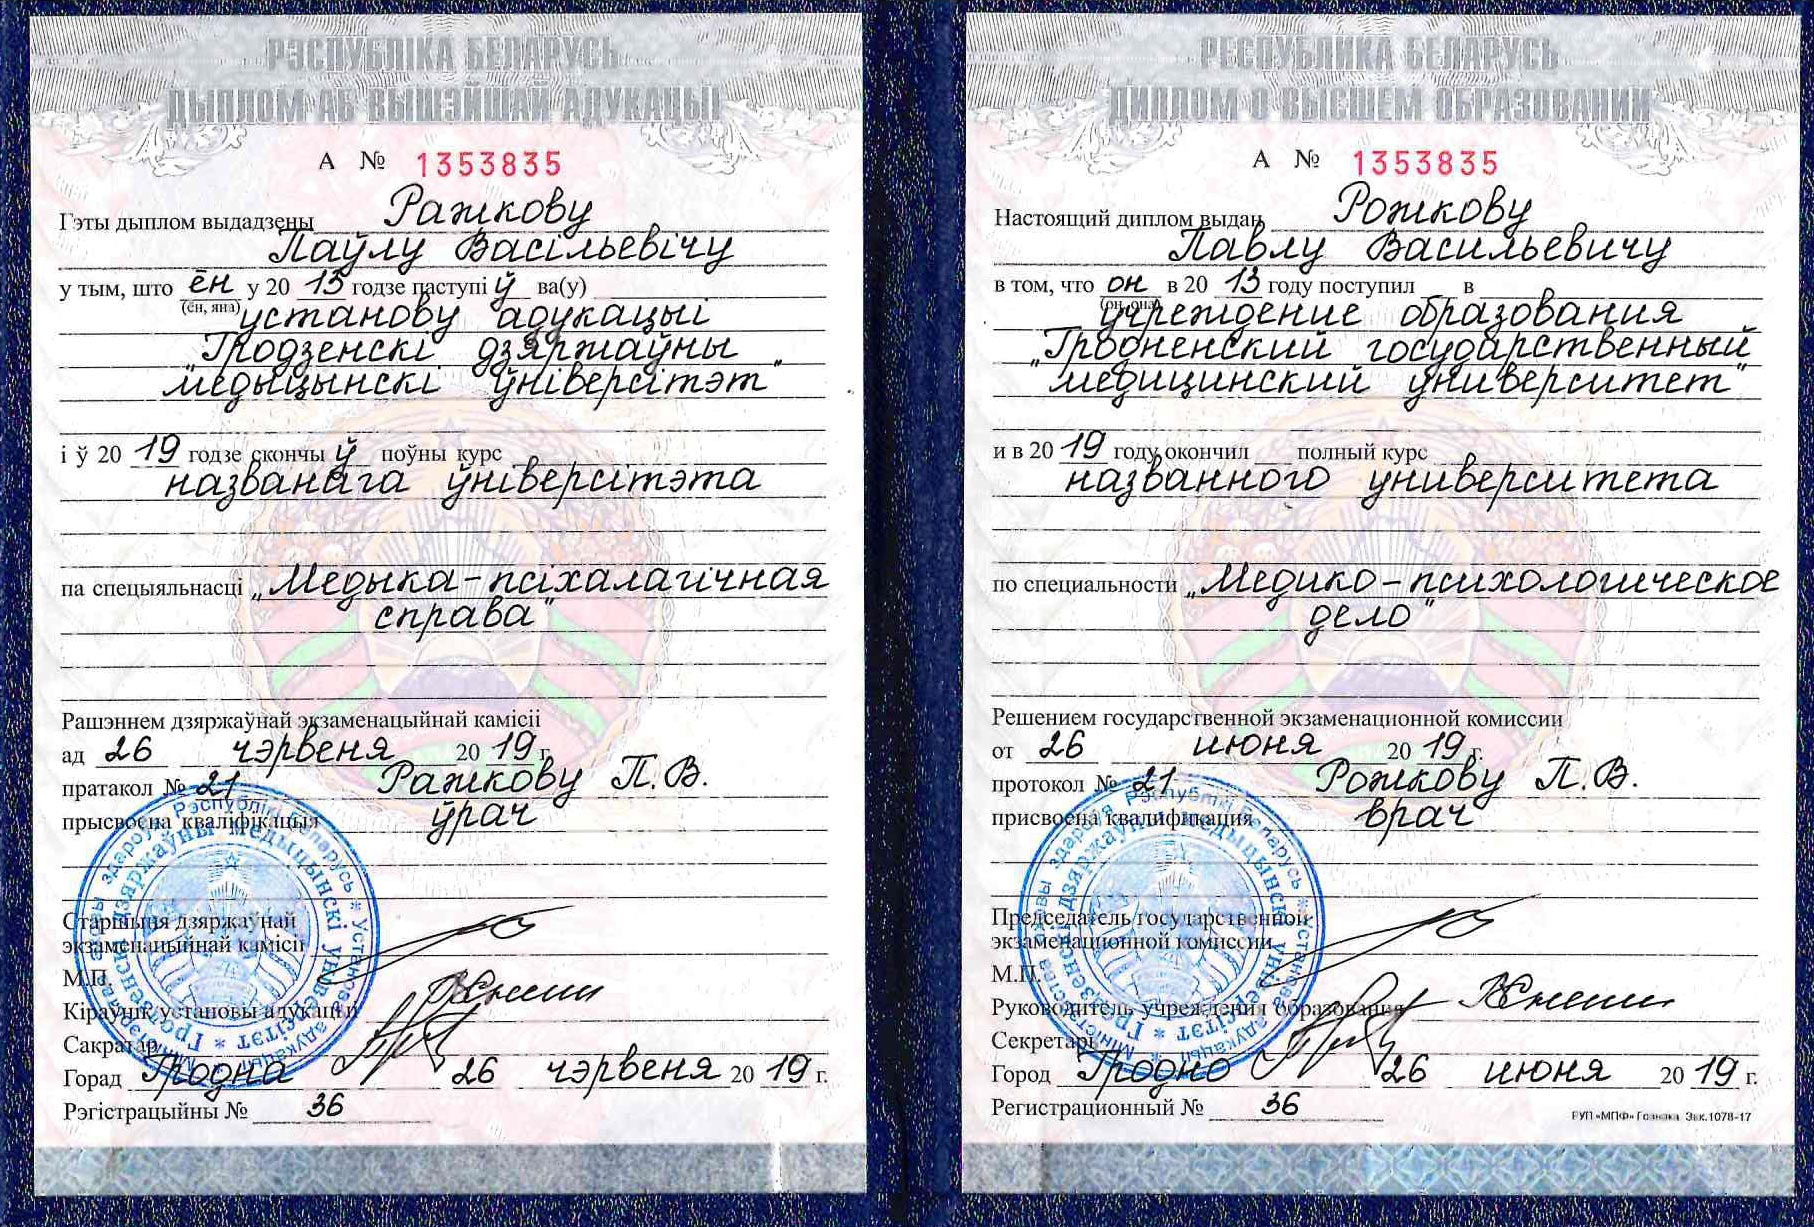 РЭСПУБЛІКА БЕЛАРУСЬ
ДЫПЛОМ АБ ВЫШЭЙШАЙ АДУКАЦЫІ
А № 1353835
Гэты дыплом выдадзены Ражкову
Паўлу Васільевічу
у тым, што ён у 20 13 годзе паступі ў ва(у)
(ён, яна)
установу адукацыі
"Гродзенскі дзяржаўны
медыцынскі ўніверсітэт"
і ў 20 19 годзе скончы ў поўны курс
названага ўніверсітэта
па спецыяльнасці „Медыка-псіхалагічная
справа"
Рашэннем дзяржаўнай экзаменацыйнай камісіі
ад 26 чэрвеня 20 19 г.
пратакол № 21 Ражкову П.В.
прысвоена кваліфікацыя ўрач
Старшыня дзяржаўнай
экзаменацыйнай камісіі
М.П.
Кіраўнік установы адукацыі
Сакратар
Горад Гродна 26 чэрвеня 20 19 г.
Рэгістрацыйны № 36
Міністэрства аховы здароўя Рэспублікі Беларусь * Установа адукацыі *
Гродзенскі дзяржаўны медыцынскі ўніверсітэт *
РЕСПУБЛИКА БЕЛАРУСЬ
ДИПЛОМ О ВЫСШЕМ ОБРАЗОВАНИИ
А № 1353835
Настоящий диплом выдан Рожкову
Павлу Васильевичу
в том, что он в 20 13 году поступил в
(он, она)
учреждение образования
„Гродненский государственный
медицинский университет"
и в 20 19 году окончил полный курс
названного университета
по специальности „Медико-психологическое
дело"
Решением государственной экзаменационной комиссии
от 26 июня 20 19 г.
протокол № 21 Рожкову П.В.
присвоена квалификация врач
Председатель государственной
экзаменационной комиссии
М.П.
Руководитель учреждения образования
Секретарь
Город Гродно 26 июня 20 19 г.
Регистрационный № 36
РУП «МПФ» Гознака Зак.1078-17
Міністэрства аховы здароўя Рэспублікі Беларусь * Установа адукацыі *
Гродзенскі дзяржаўны медыцынскі ўніверсітэт *